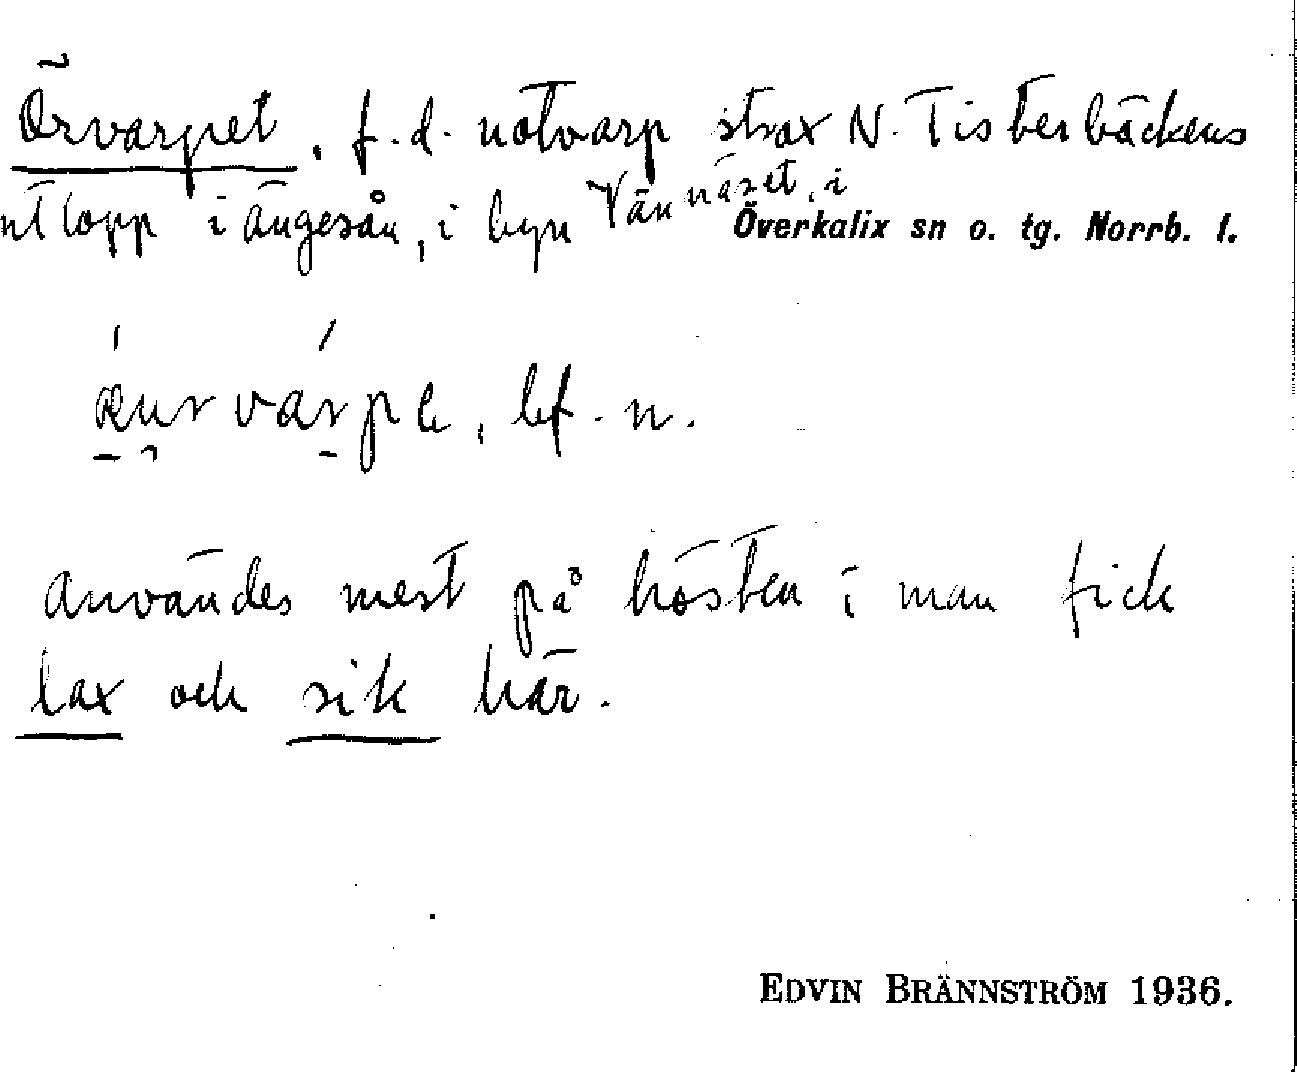 Örvarpet, f.d. notvarp strax N. Tisterbäckens
utlopp i Ängesån, i byn Vännäset, i
Överkalix sn o. tg. Norrb. l.
bf. n.
användes mest på hösten; man fick
lax och sik här.
EDVIN BRÄNNSTRÖM 1936.